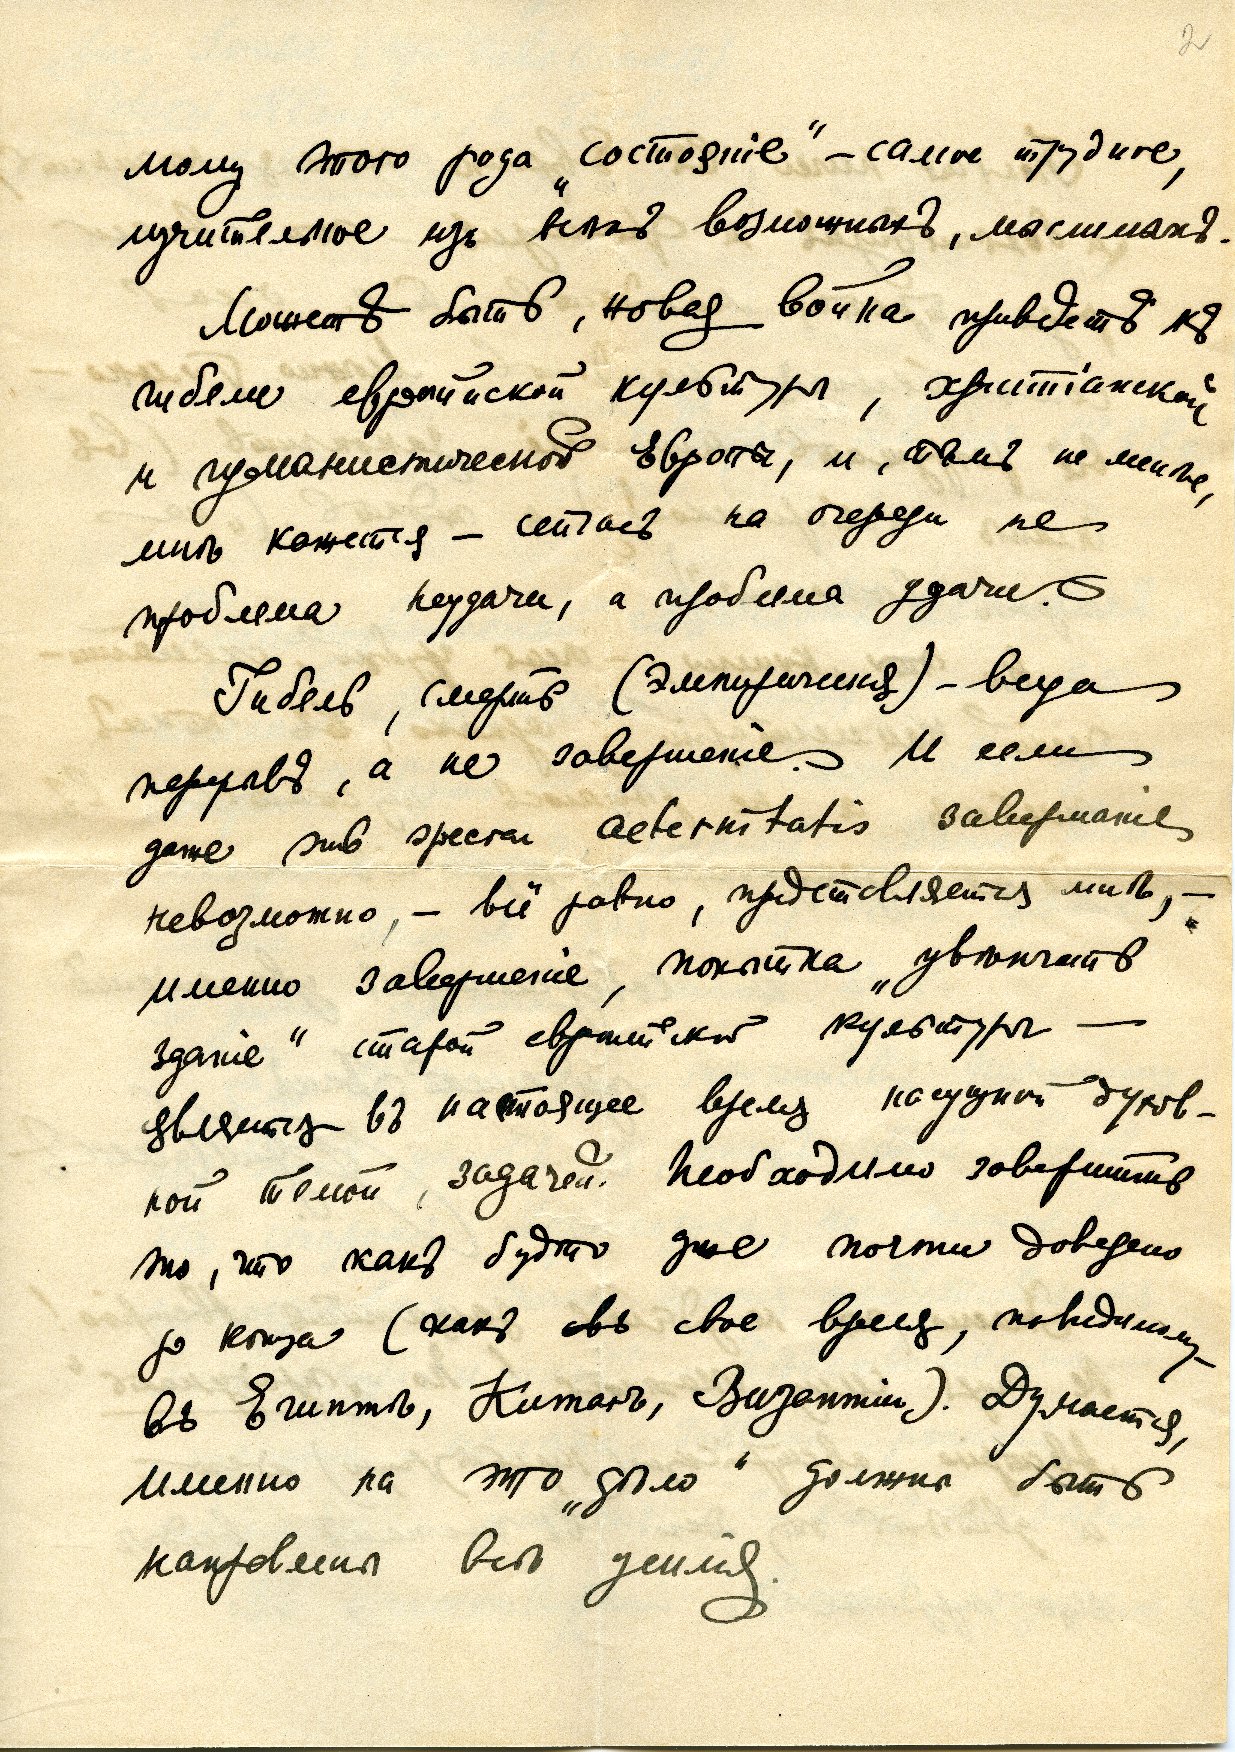 2
мому этого рода „состоянiе“ – самое трудное,
мучительное изъ всѣхъ возможныхъ, мыслимыхъ.
Можетъ быть, новая война приведетъ къ
гибели европейской культуры, христiанской
и гуманистической Европы, и, тѣмъ не менѣе,
мнѣ кажется – сейчасъ на очереди не
проблема неудачи, а проблема удачи.
Гибель, смерть (эмпирическая) – всегда
перерывъ, а не завершенiе. И если
даже sub specie aeternitatis завершенiе
невозможно, – всё равно, представляется мнѣ, –
именно завершенiе, попытка „увѣнчать
зданiе“ старой европейской культуры —
является въ настоящее время насущной духов-
ной темой, задачей. Необходимо завершить
то, что какъ будто уже почти доведено
до конца (какъ въ свое время, повидимому
въ Египтѣ, Китаѣ, Византiи). Думается,
именно на это „дѣло“ должны быть
направлены всѣ усилiя.